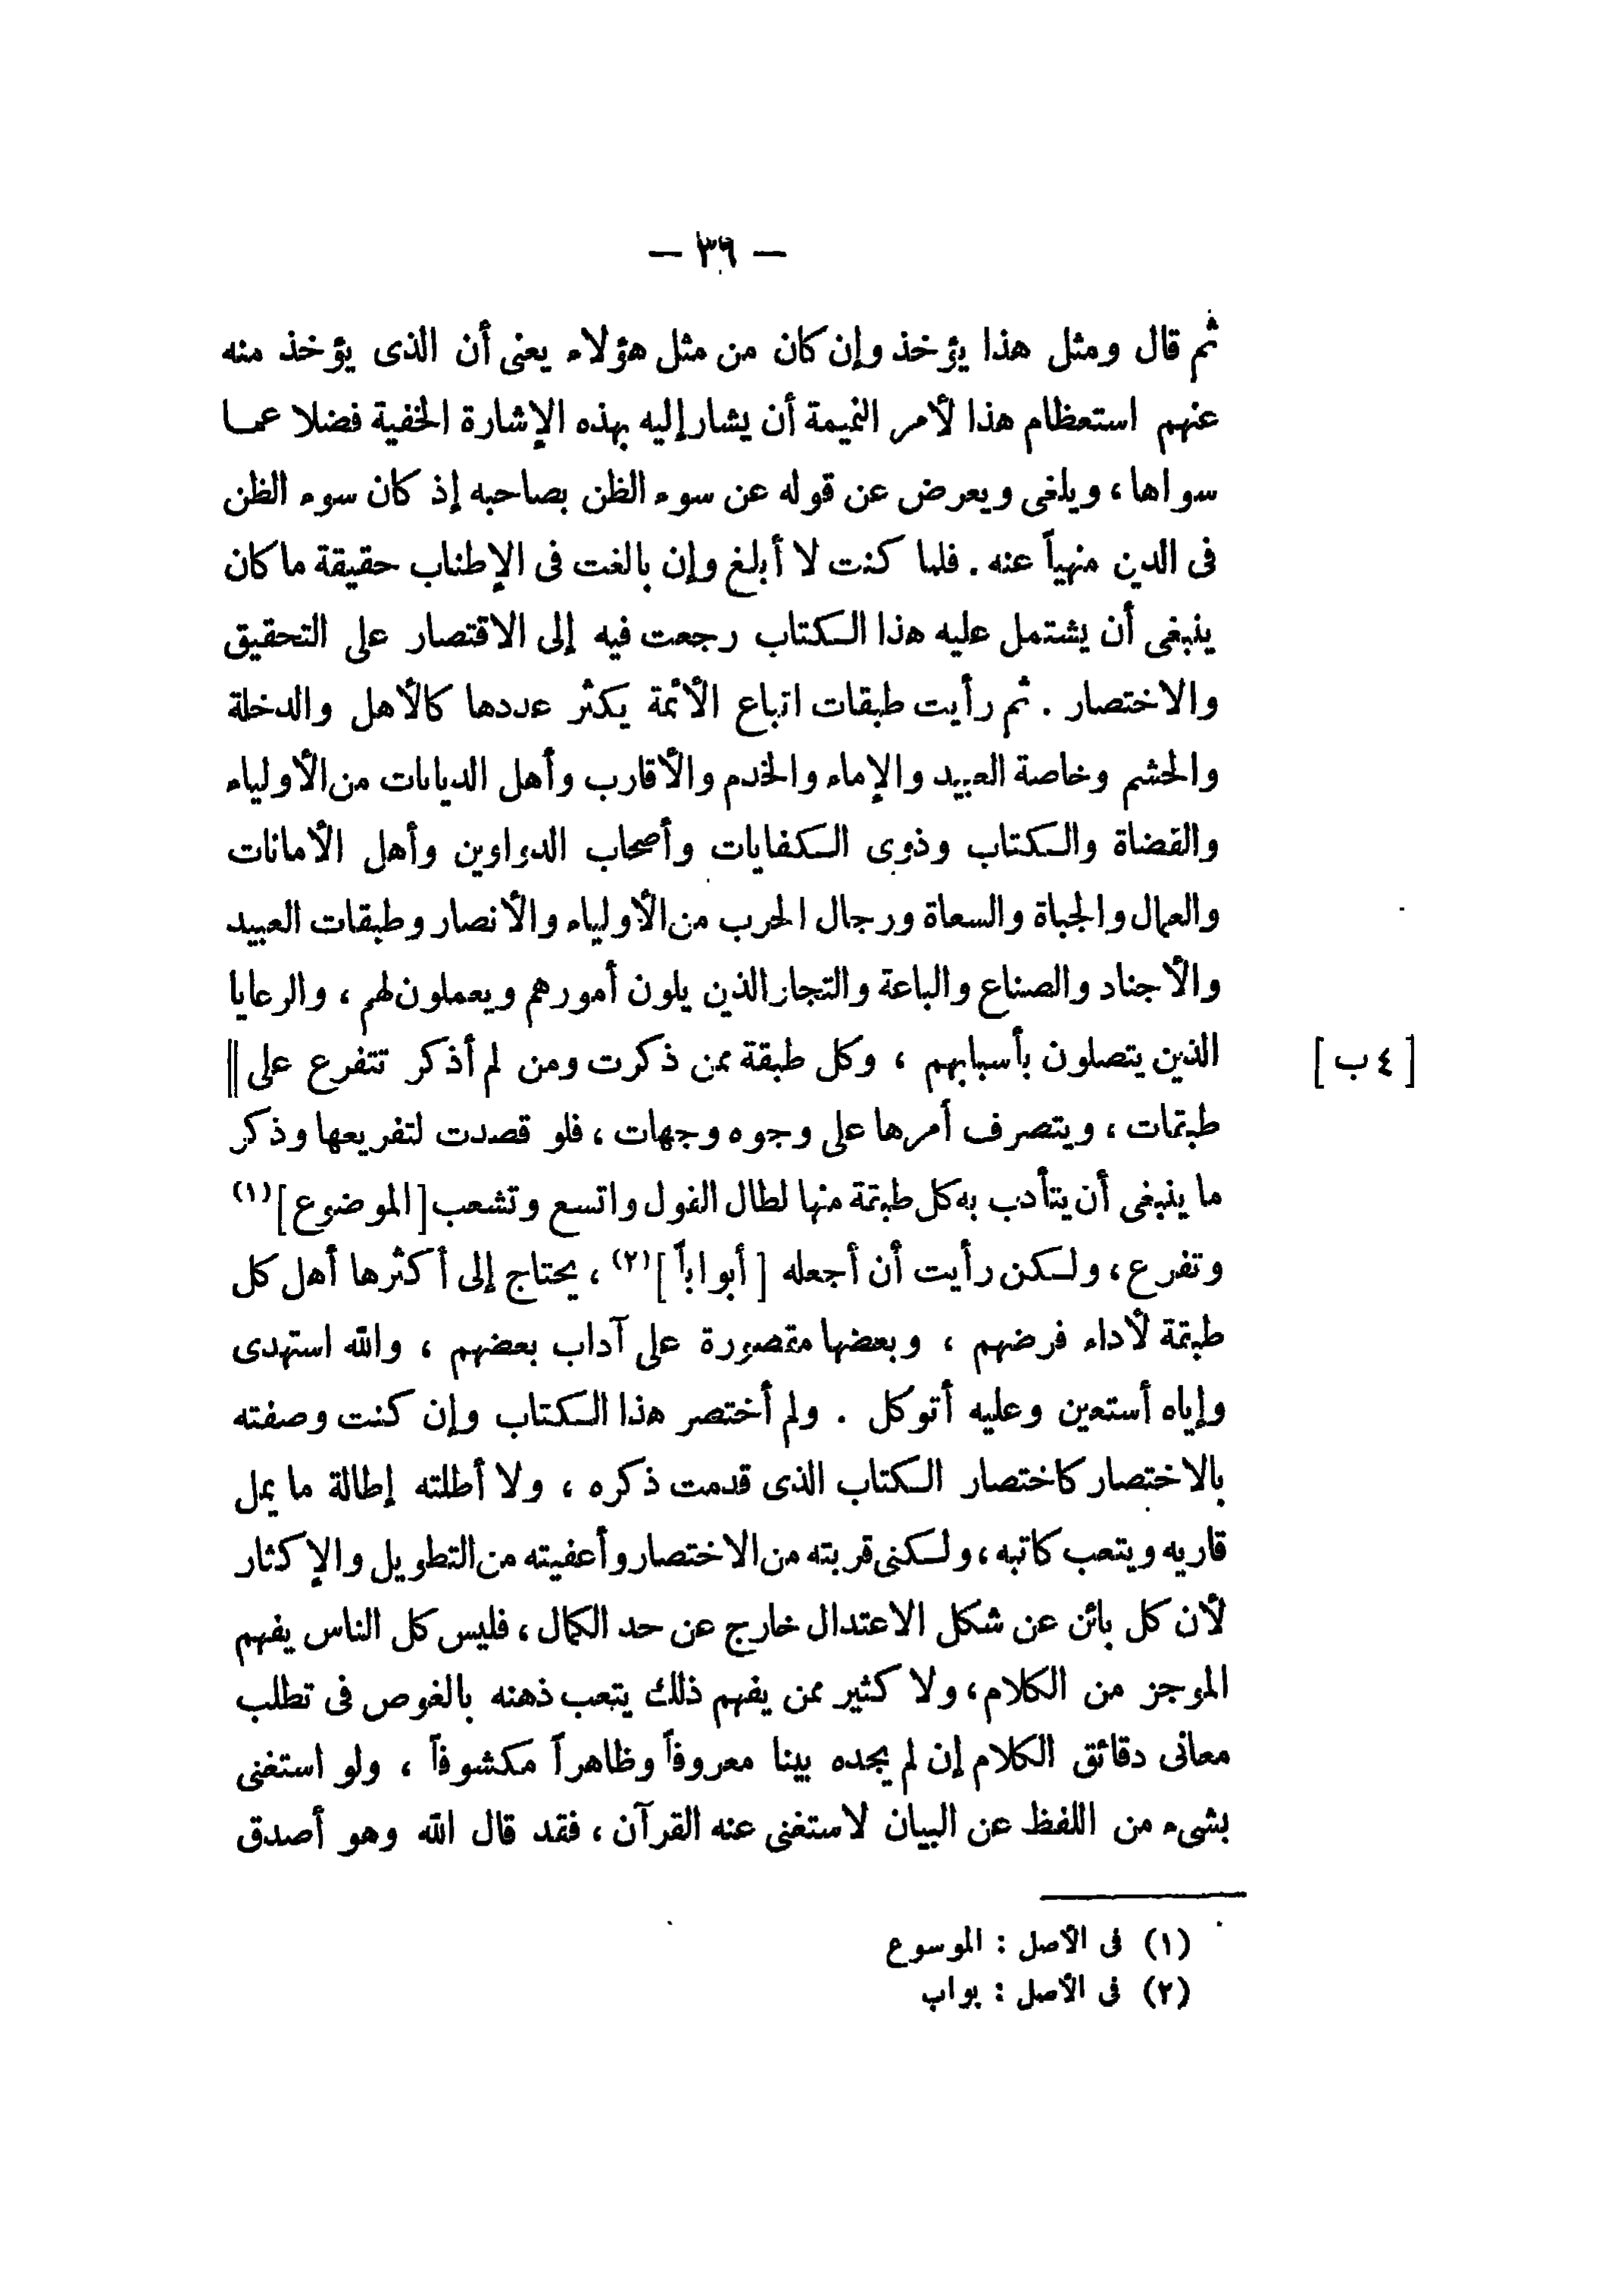 — ٣٦ —
ثم قال ومثل هذا يؤخذ وإن كان من مثل هؤلاء يعنى أن الذى يؤخذ منه
عنهم استعظام هذا لأمر النميمة أن يشار إليه بهذه الإشارة الخفية فضلا عما
سواها ، ويلغى ويعرض عن قوله عن سوء الظن بصاحبه إذ كان سوء الظن
فى الدين منهياً عنه . فلما كنت لا أبلغ وإن بالغت فى الإطناب حقيقة ما كان
ينبغى أن يشتمل عليه هذا الكتاب رجعت فيه إلى الاقتصار على التحقيق
والاختصار . ثم رأيت طبقات اتباع الأئمة يكثر عددها كالأهل والدخلة
والحشم وخاصة العبيد والإماء والخدم والأقارب وأهل الديانات من الأولياء
والقضاة والكتاب وذوى الكفايات وأصحاب الدواوين وأهل الأمانات
والعمال والجباة والسعاة ورجال الحرب من الأولياء والأنصار وطبقات العبيد
والأجناد والصناع والباعة والتجار الذين يلون أمورهم ويعملون لهم ، والرعايا
الذين يتصلون بأسبابهم ، وكل طبقة ممن ذكرت ومن لم أذكر تتفرع على ||
[ ٤ ب ]
طبقات ، ويتصرف أمرها على وجوه وجهات ، فلو قصدت لتفريعها وذكر
ما ينبغى أن يتأدب به كل طبقة منها لطال القول واتسع وتشعب [ الموضوع ] (١)
وتفرع ، ولكن رأيت أن أجعله [ أبواباً ] (٢) ، يحتاج إلى أكثرها أهل كل
طبقة لأداء فرضهم ، وبعضها مقصورة على آداب بعضهم ، والله استهدى
وإياه أستعين وعليه أتوكل . ولم أختصر هذا الكتاب وإن كنت وصفته
بالاختصار كاختصار الكتاب الذى قدمت ذكره ، ولا أطلته إطالة ما يمل
قاريه ويتعب كاتبه ، ولكنى قربته من الاختصار وأعفيته من التطويل والإكثار
لأن كل بائن عن شكل الاعتدال خارج عن حد الكمال ، فليس كل الناس يفهم
الموجز من الكلام ، ولا كثير ممن يفهم ذلك يتعب ذهنه بالغوص فى تطلب
معانى دقائق الكلام إن لم يجده بينا معروفاً وظاهراً مكشوفاً ، ولو استغنى
بشىء من اللفظ عن البيان لاستغنى عنه القرآن ، فقد قال الله وهو أصدق
(١) فى الأصل : الموسوع
(٢) فى الأصل : بواب